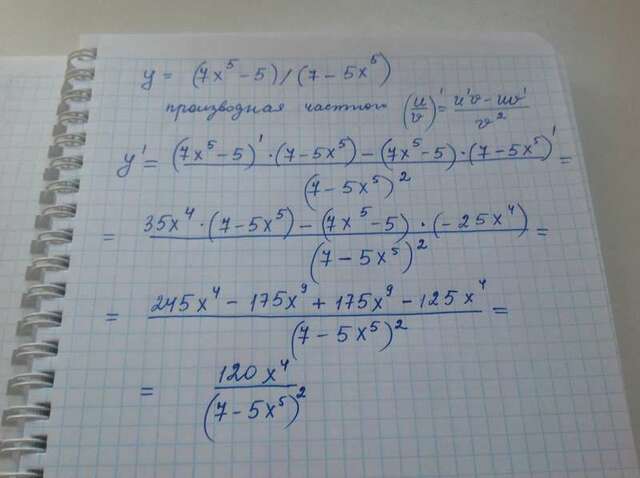 y = (7x⁵-5)/(7-5x⁵)
производная частного (u/v)' = (u'v - uv')/v²
y' = ((7x⁵-5)'·(7-5x⁵) - (7x⁵-5)·(7-5x⁵)')/(7-5x⁵)² =
= (35x⁴·(7-5x⁵) - (7x⁵-5)·(-25x⁴))/(7-5x⁵)² =
= (245x⁴ - 175x⁹ + 175x⁹ - 125x⁴)/(7-5x⁵)² =
= 120x⁴/(7-5x⁵)²